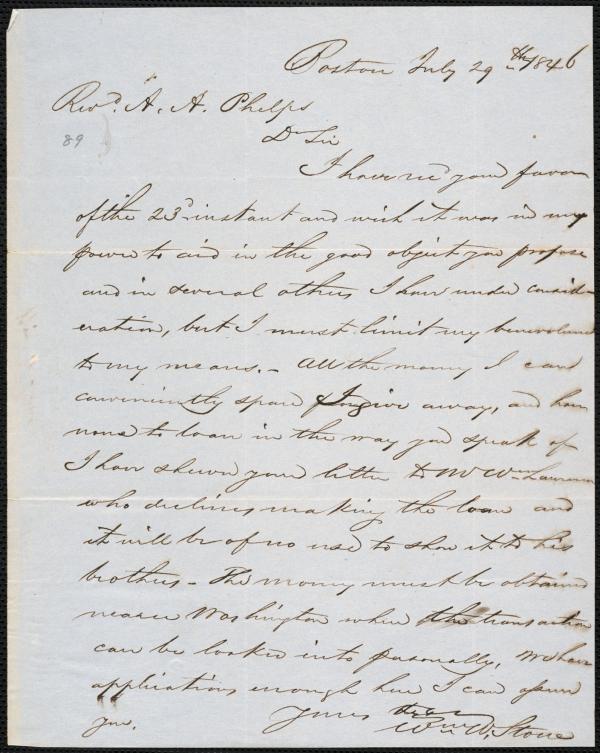 Boston July 29th 1846
Revd. A. A. Phelps
89
Dr Sir
I have recd your favor
of the 23d instant and wish it was in my
power to aid in the good object you propose
and in several others I have under consid-
eration, but I must limit my benevolence
to my means. - All the money I can
conveniently spare I give away, and have
none to loan in the way you speak of
I have shewn your letter to Mr Wm Lawrence
who declines making the loan and
it will be of no use to show it to his
brothers - The money must be obtained
nearer Washington where the transaction
can be looked into personally, we have
applications enough here I can assure
you. Yours
Wm W. Stone